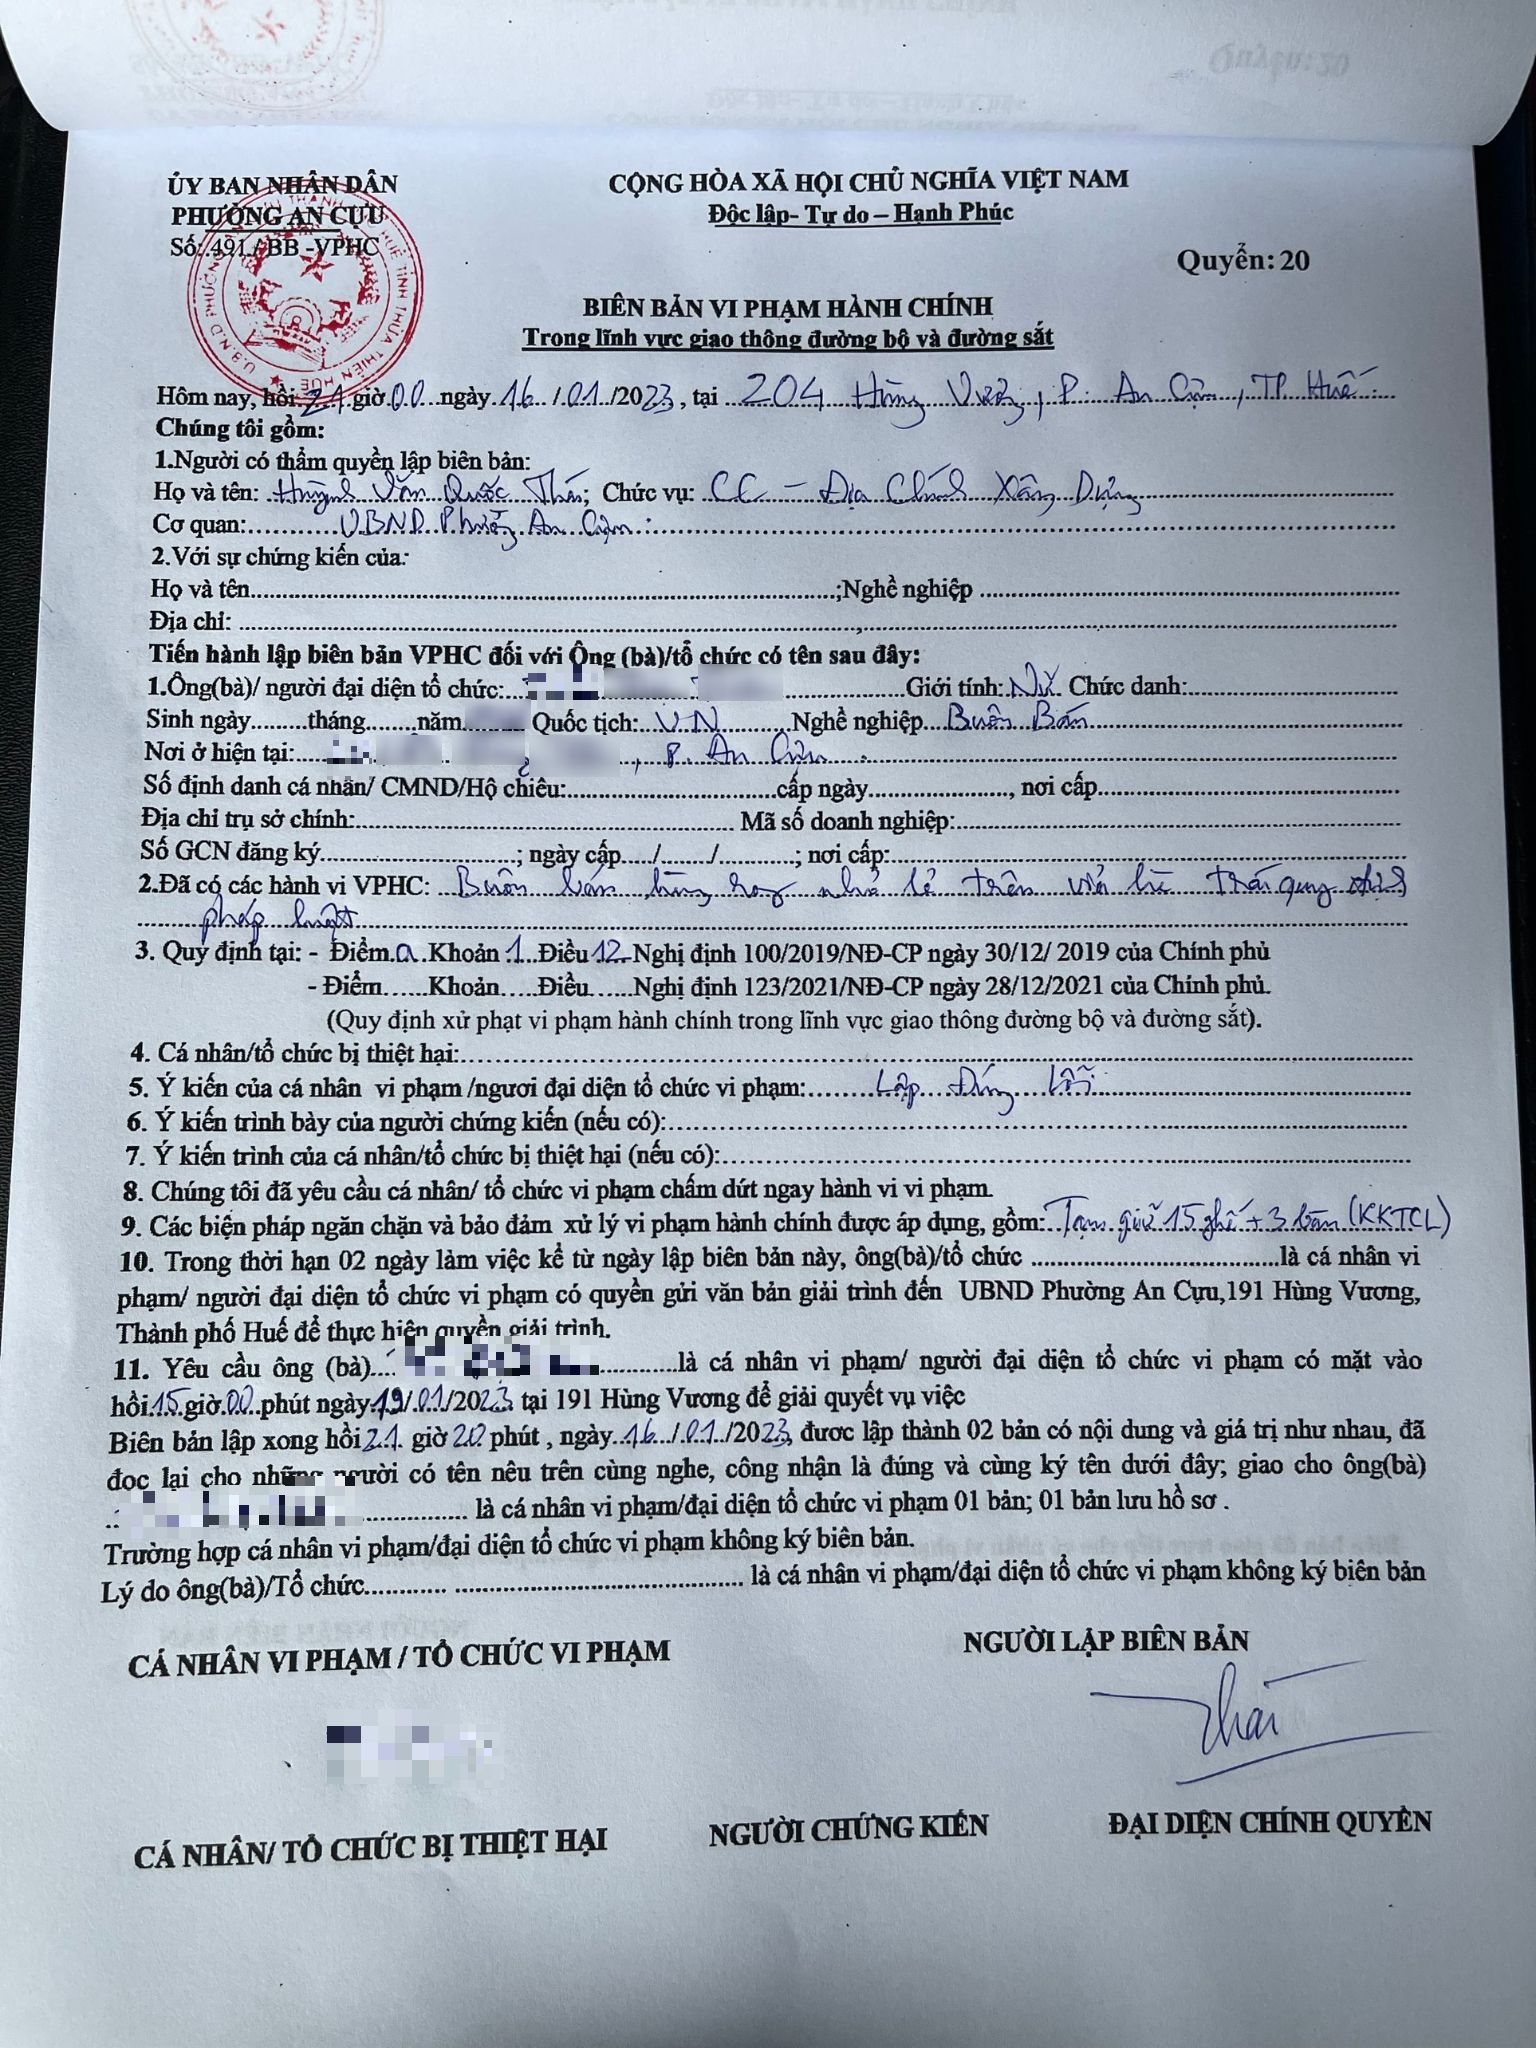 ỦY BAN NHÂN DÂN
PHƯỜNG AN CỰU
Số: 491 / BB -VPHC
CỘNG HÒA XÃ HỘI CHỦ NGHĨA VIỆT NAM
Độc lập- Tự do – Hạnh Phúc
Quyển: 20
BIÊN BẢN VI PHẠM HÀNH CHÍNH
Trong lĩnh vực giao thông đường bộ và đường sắt
Hôm nay, hồi 21 giờ 00 ngày 16 /01 /2023, tại 204 Hùng Vương, P. An Cựu, TP Huế
Chúng tôi gồm:
1.Người có thẩm quyền lập biên bản:
Họ và tên: Huỳnh Văn Quốc Thái; Chức vụ: CC – Địa Chính Xây Dựng
Cơ quan: UBND Phường An Cựu
2.Với sự chứng kiến của:
Họ và tên ;Nghề nghiệp
Địa chỉ:
Tiến hành lập biên bản VPHC đối với Ông (bà)/tổ chức có tên sau đây:
1.Ông(bà)/ người đại diện tổ chức: Giới tính: Nữ Chức danh:
Sinh ngày tháng năm Quốc tịch: VN Nghề nghiệp Buôn Bán
Nơi ở hiện tại: , P. An Cựu
Số định danh cá nhân/ CMND/Hộ chiếu: cấp ngày , nơi cấp
Địa chỉ trụ sở chính: Mã số doanh nghiệp:
Số GCN đăng ký ; ngày cấp / / ; nơi cấp:
2.Đã có các hành vi VPHC: Buôn bán hàng rong nhỏ lẻ trên vỉa hè trái quy định
pháp luật
3. Quy định tại: - Điểm a Khoản 1 Điều 12 Nghị định 100/2019/NĐ-CP ngày 30/12/ 2019 của Chính phủ
- Điểm Khoản Điều Nghị định 123/2021/NĐ-CP ngày 28/12/2021 của Chính phủ.
(Quy định xử phạt vi phạm hành chính trong lĩnh vực giao thông đường bộ và đường sắt).
4. Cá nhân/tổ chức bị thiệt hại:
5. Ý kiến của cá nhân vi phạm /ngươi đại diện tổ chức vi phạm: Lập Đúng Lỗi
6. Ý kiến trình bày của người chứng kiến (nếu có):
7. Ý kiến trình của cá nhân/tổ chức bị thiệt hại (nếu có):
8. Chúng tôi đã yêu cầu cá nhân/ tổ chức vi phạm chấm dứt ngay hành vi vi phạm.
9. Các biện pháp ngăn chặn và bảo đảm xử lý vi phạm hành chính được áp dụng, gồm: Tạm giữ 15 ghế + 3 bàn (KKTCL)
10. Trong thời hạn 02 ngày làm việc kể từ ngày lập biên bản này, ông(bà)/tổ chức là cá nhân vi
phạm/ người đại diện tổ chức vi phạm có quyền gửi văn bản giải trình đến UBND Phường An Cựu,191 Hùng Vương,
Thành phố Huế để thực hiện quyền giải trình.
11. Yêu cầu ông (bà) là cá nhân vi phạm/ người đại diện tổ chức vi phạm có mặt vào
hồi 15 giờ 00 phút ngày 19/01/2023 tại 191 Hùng Vương để giải quyết vụ việc
Biên bản lập xong hồi 21 giờ 20 phút , ngày 16 /01 /2023, đươc lập thành 02 bản có nội dung và giá trị như nhau, đã
đọc lại cho những người có tên nêu trên cùng nghe, công nhận là đúng và cùng ký tên dưới đây; giao cho ông(bà)
là cá nhân vi phạm/đại diện tổ chức vi phạm 01 bản; 01 bản lưu hồ sơ .
Trường hợp cá nhân vi phạm/đại diện tổ chức vi phạm không ký biên bản.
Lý do ông(bà)/Tổ chức là cá nhân vi phạm/đại diện tổ chức vi phạm không ký biên bản
CÁ NHÂN VI PHẠM / TỔ CHỨC VI PHẠM
NGƯỜI LẬP BIÊN BẢN
Thái
CÁ NHÂN/ TỔ CHỨC BỊ THIỆT HẠI
NGƯỜI CHỨNG KIẾN
ĐẠI DIỆN CHÍNH QUYỀN